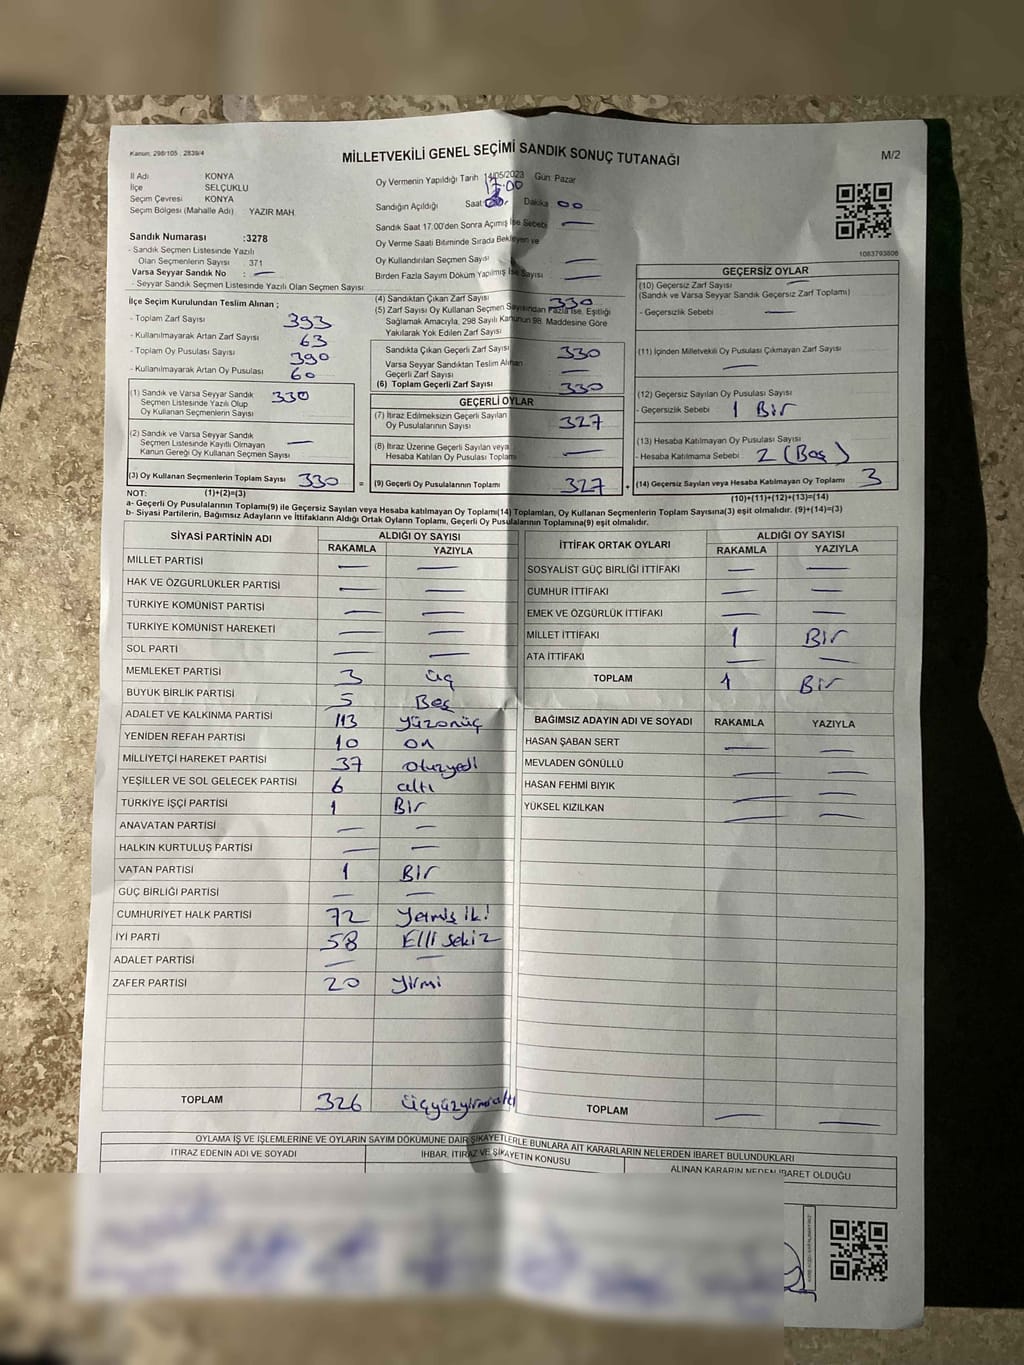 Kanun, 298/105 2839/4
MİLLETVEKİLİ GENEL SEÇİMİ SANDIK SONUÇ TUTANAĞI
M/2
İl Adı KONYA
İlçe SELÇUKLU
Seçim Çevresi KONYA
Seçim Bölgesi (Mahalle Adı) YAZIR MAH.
Sandık Numarası :3278
- Sandık Seçmen Listesinde Yazılı
Olan Seçmenlerin Sayısı : 371
Varsa Seyyar Sandık No : —
- Seyyar Sandık Seçmen Listesinde Yazılı Olan Seçmen Sayısı
Oy Vermenin Yapıldığı Tarih 14/05/2023 Gün: Pazar
17:00
Sandığın Açıldığı Saat Dakika 00
Sandık Saat 17.00'den Sonra Açımış İse Sebebi —
Oy Verme Saati Bitiminde Sırada Bekleyen ve
Oy Kullandırılan Seçmen Sayısı —
Birden Fazla Sayım Döküm Yapılmış İse Sayısı —
1083793806
İlçe Seçim Kurulundan Teslim Alınan ;
- Toplam Zarf Sayısı 393
- Kullanılmayarak Artan Zarf Sayısı 63
- Toplam Oy Pusulası Sayısı 390
- Kullanılmayarak Artan Oy Pusulası 60
(1) Sandık ve Varsa Seyyar Sandık 330
Seçmen Listesinde Yazılı Olup
Oy Kullanan Seçmenlerin Sayısı
(2) Sandık ve Varsa Seyyar Sandık —
Seçmen Listesinde Kayıtlı Olmayan
Kanun Gereği Oy Kullanan Seçmen Sayısı
(3) Oy Kullanan Seçmenlerin Toplam Sayısı 330 =
(4) Sandıktan Çıkan Zarf Sayısı 330
(5) Zarf Sayısı Oy Kullanan Seçmen Sayısından Fazla İse, Eşitliği
Sağlamak Amacıyla, 298 Sayılı Kanunun 98. Maddesine Göre
Yakılarak Yok Edilen Zarf Sayısı
Sandıkta Çıkan Geçerli Zarf Sayısı 330
Varsa Seyyar Sandıktan Teslim Alınan —
Geçerli Zarf Sayısı
(6) Toplam Geçerli Zarf Sayısı 330
GEÇERLİ OYLAR
(7) İtiraz Edilmeksizin Geçerli Sayılan 327
Oy Pusulalarının Sayısı
(8) İtiraz Üzerine Geçerli Sayılan veya —
Hesaba Katılan Oy Pusulası Toplamı
(9) Geçerli Oy Pusulalarının Toplamı 327 +
GEÇERSİZ OYLAR
(10) Geçersiz Zarf Sayısı —
(Sandık ve Varsa Seyyar Sandık Geçersiz Zarf Toplamı)
- Geçersizlik Sebebi : —
(11) İçinden Milletvekili Oy Pusulası Çıkmayan Zarf Sayısı
—
(12) Geçersiz Sayılan Oy Pusulası Sayısı
- Geçersizlik Sebebi : 1 Bir
(13) Hesaba Katılmayan Oy Pusulası Sayısı
- Hesaba Katılmama Sebebi : 2 (Boş)
(14) Geçersiz Sayılan veya Hesaba Katılmayan Oy Toplamı 3
NOT: (1)+(2)=(3) (10)+(11)+(12)+(13)=(14)
a- Geçerli Oy Pusulalarının Toplamı(9) ile Geçersiz Sayılan veya Hesaba katılmayan Oy Toplamı(14) Toplamları, Oy Kullanan Seçmenlerin Toplam Sayısına(3) eşit olmalıdır. (9)+(14)=(3)
b- Siyasi Partilerin, Bağımsız Adayların ve İttifakların Aldığı Ortak Oyların Toplamı, Geçerli Oy Pusulalarının Toplamına(9) eşit olmalıdır.
SİYASİ PARTİNİN ADI ALDIĞI OY SAYISI
RAKAMLA YAZIYLA
MİLLET PARTİSİ — —
HAK VE ÖZGÜRLÜKLER PARTİSİ — —
TÜRKİYE KOMÜNİST PARTİSİ — —
TÜRKİYE KOMÜNİST HAREKETİ — —
SOL PARTİ — —
MEMLEKET PARTİSİ 3 üç
BÜYÜK BİRLİK PARTİSİ 5 Beş
ADALET VE KALKINMA PARTİSİ 113 yüzonüç
YENİDEN REFAH PARTİSİ 10 on
MİLLİYETÇİ HAREKET PARTİSİ 37 otuzyedi
YEŞİLLER VE SOL GELECEK PARTİSİ 6 altı
TÜRKİYE İŞÇİ PARTİSİ 1 Bir
ANAVATAN PARTİSİ — —
HALKIN KURTULUŞ PARTİSİ — —
VATAN PARTİSİ 1 Bir
GÜÇ BİRLİĞİ PARTİSİ — —
CUMHURİYET HALK PARTİSİ 72 Yetmiş iki
İYİ PARTİ 58 Elli sekiz
ADALET PARTİSİ — —
ZAFER PARTİSİ 20 yirmi
TOPLAM 326 üçyüzyirmialtı
İTTİFAK ORTAK OYLARI ALDIĞI OY SAYISI
RAKAMLA YAZIYLA
SOSYALİST GÜÇ BİRLİĞİ İTTİFAKI — —
CUMHUR İTTİFAKI — —
EMEK VE ÖZGÜRLÜK İTTİFAKI — —
MİLLET İTTİFAKI 1 Bir
ATA İTTİFAKI — —
TOPLAM 1 Bir
BAĞIMSIZ ADAYIN ADI VE SOYADI RAKAMLA YAZIYLA
HASAN ŞABAN SERT — —
MEVLADEN GÖNÜLLÜ — —
HASAN FEHMİ BIYIK — —
YÜKSEL KIZILKAN — —
TOPLAM — —
OYLAMA İŞ VE İŞLEMLERİNE VE OYLARIN SAYIM DÖKÜMÜNE DAİR ŞİKAYETLERLE BUNLARA AİT KARARLARIN NELERDEN İBARET BULUNDUKLARI
İTİRAZ EDENİN ADI VE SOYADI İHBAR, İTİRAZ VE ŞİKAYETİN KONUSU ALINAN KARARIN NEDEN İBARET OLDUĞU